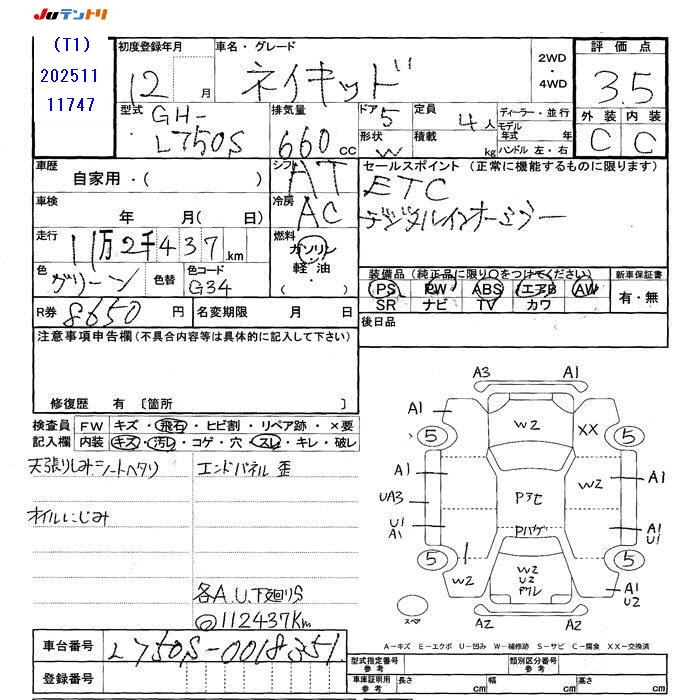 JUテントリ
(T1)
202511
11747
初度登録年月
12 月
車名・グレード
ネイキッド
2WD
・
4WD
評価点
3.5
外装 内装
C C
型式
GH-
L750S
排気量
660 cc
ドア 5
形状 W
定員 4 人
積載 kg
ディーラー・並行
モデル年式 年
ハンドル 左・右
車歴
自家用・( )
シフト AT
セールスポイント (正常に機能するものに限ります)
ETC
デジタルインナーミラー
車検
年 月( 日)
冷房 AC
走行
11万2千437.km
燃料
ガソリン
軽油・
( )
色 グリーン
色替
色コード
G34
装備品(純正品に限り○をつけてください)
PS PW ABS エアB AW
SR ナビ TV カワ
新車保証書
有・無
R券 8650 円
名変期限 月 日
後日品
注意事項申告欄(不具合内容等は具体的に記入して下さい)
修復歴 有 〔箇所 〕
検査員
記入欄
FW キズ・飛石・ヒビ割・リペア跡・×要
内装 キズ・汚レ・コゲ・穴・スレ・キレ・破レ
天張りしみ.シートヘタリ
エンドパネル 歪
オイルにじみ
各A.U.下廻りS
◎112437Km
A3 A1
A1 W2 XX
5 5
A1 W2 A1
UA3 Pアセ
U1 A1
A1 U1
Pハゲ
5 5
W2 W2 A1
U2 U2
Pアレ
スペア
A2 A2
A−キズ E−エクボ U−凹み W−補修跡 S−サビ C−腐食 XX−交換済
車台番号 L750S-0018351
登録番号
型式指定番号
参考
類別区分番号
参考
車庫証明用
参考
長さ cm 幅 cm 高さ cm